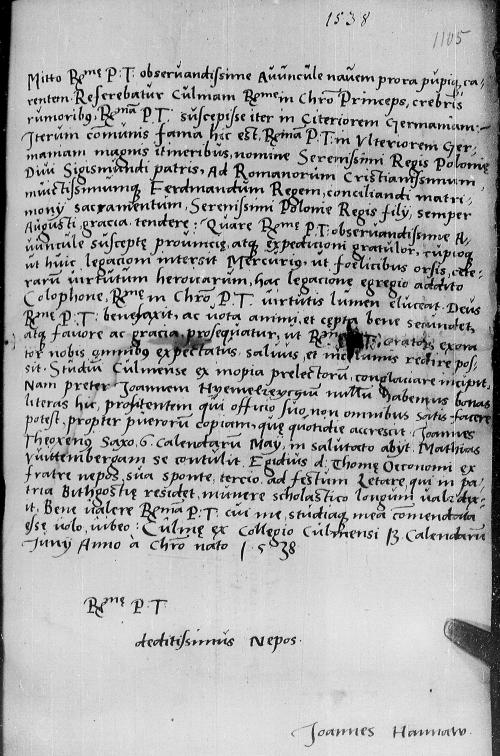 1538
1105
Mitto R.me P: T: observandissime Avuncule navem prora pupiq, ca,
rentem. Referebatur Culmam R.me in Chro Princeps, crebris
rumoribq, R.mam P. T. suscepisse iter in Citeriorem Germaniam:
Iterum comunis fama hic est. R.mam P. T. in Ulteriorem Ger,
maniam magnis itineribus, nomine Serenissimi Regis Polonię
Divi Sigismundi patris, Ad Romanorum Cristianissimum,
invictissimumq, Ferdinandum Regem, conciliandi matri,
monij sacramentum, Serenissimi Polonię Regis filij, semper
Augusti gracia tendere: Quare R.me P. T. observandissime A,
vuncule susceptę provincię, atq, expedicioni gratulor, cupioq,
ut huic legacioni intersit Mercurius, ut foelicibus orsis, cete,
rarum virtutum heroicarum, hac legacione egregio addito
Colophone, R.me in Chro P. T. virtutis lumen eluceat. Deus
R.me P. T. benefaxit, ac vota animi, et cępta bene secundet,
atq, favore ac gracia prosequatur, ut orator exora
tor nobis omnibq expectatus, salvus, et redire pos,
sit. Studium Culmense ex inopia prelectorum, conglaciare incipit,
Nam preter Joannem nullum habemus bonas
literas hic, profitentem qui officio suo, non omnibus satis facere
potest, propter puerorum copiam, quę quotidie accrescit. Joannes
Theoxenus Saxo. 6. Calendarum Maij, insalutato abijt. Mathias
Vuittembergam se contulit. Egidius d. Thomę Oeconomi ex
fratre nepos, sua sponte, tercio ad festum Letare, qui in pa,
tria Bithgostię residet, munere scholastico longum vale dix,
it. Bene valere R.mam P. T. cui me, studiaq, mea comendata
esse volo, iubeo: Culmę ex Collegio Culmensi 13. Calendarum
Junij Anno à Chro nato 1538
R.mę P. T.
deditissimus Nepos.
Joannes Hannaw.